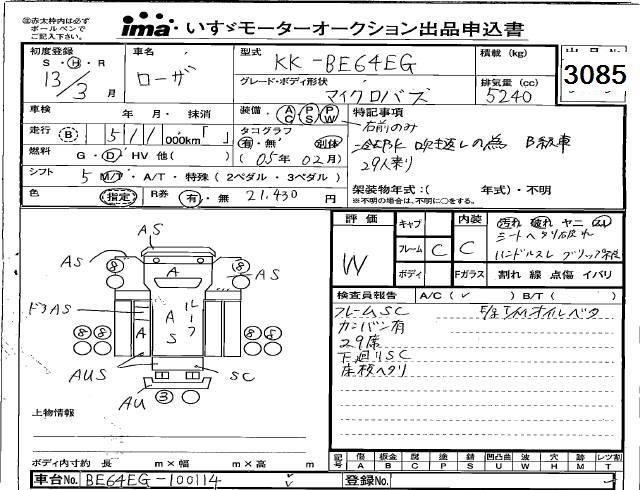 ㊟赤太枠内は必ず
ボールペンで
ご記入下さい。
ima いすゞモーターオークション出品申込書
初度登録
S・H・R
13/3月
車名
ローザ
型式
KK-BE64EG
グレード・ボディ形状
マイクロバス
積載 (kg)
排気量 (cc)
5240
3085
車検 年 月・ 抹消
装備 AC PS PW
特記事項
右前のみ
走行 B 51 000km「 」
タコグラフ
有・無 別体
(05年02月)
吹き返しの為 B級車
29人乗り
燃料 G・D・HV 他( )
シフト 5 M/T・A/T・特殊(2ペダル・3ペダル)
架装物年式:( 年式)・不明
※不明の場合は、不明に○をする。
色 指定 R券 有・無 21,430 円
評価
W
キャブ
フレーム C
ボディ
内装
C
Fガラス
汚れ 破れ ヤニ スレ
シートヘタリ破れ
ハンドルスレ
割れ 線 点傷 イバリ
検査員報告 A/C(✓ ) B/T( )
フレームSC
カンバン有
29席
下廻りSC
床板ヘタリ
AS
AS
AS
A
ドアAS
A
A
S
ルーフ
8
8
8 8
8
AUS
SC
AU
3
上物情報
ボディ内寸約 長 m×幅 m×高 m
記号 傷A 板金B 腐C 塗P 錆S 凹凸曲U 波W 穴H 跡M レツ割T
車台No. BE64EG-100114
登録No.